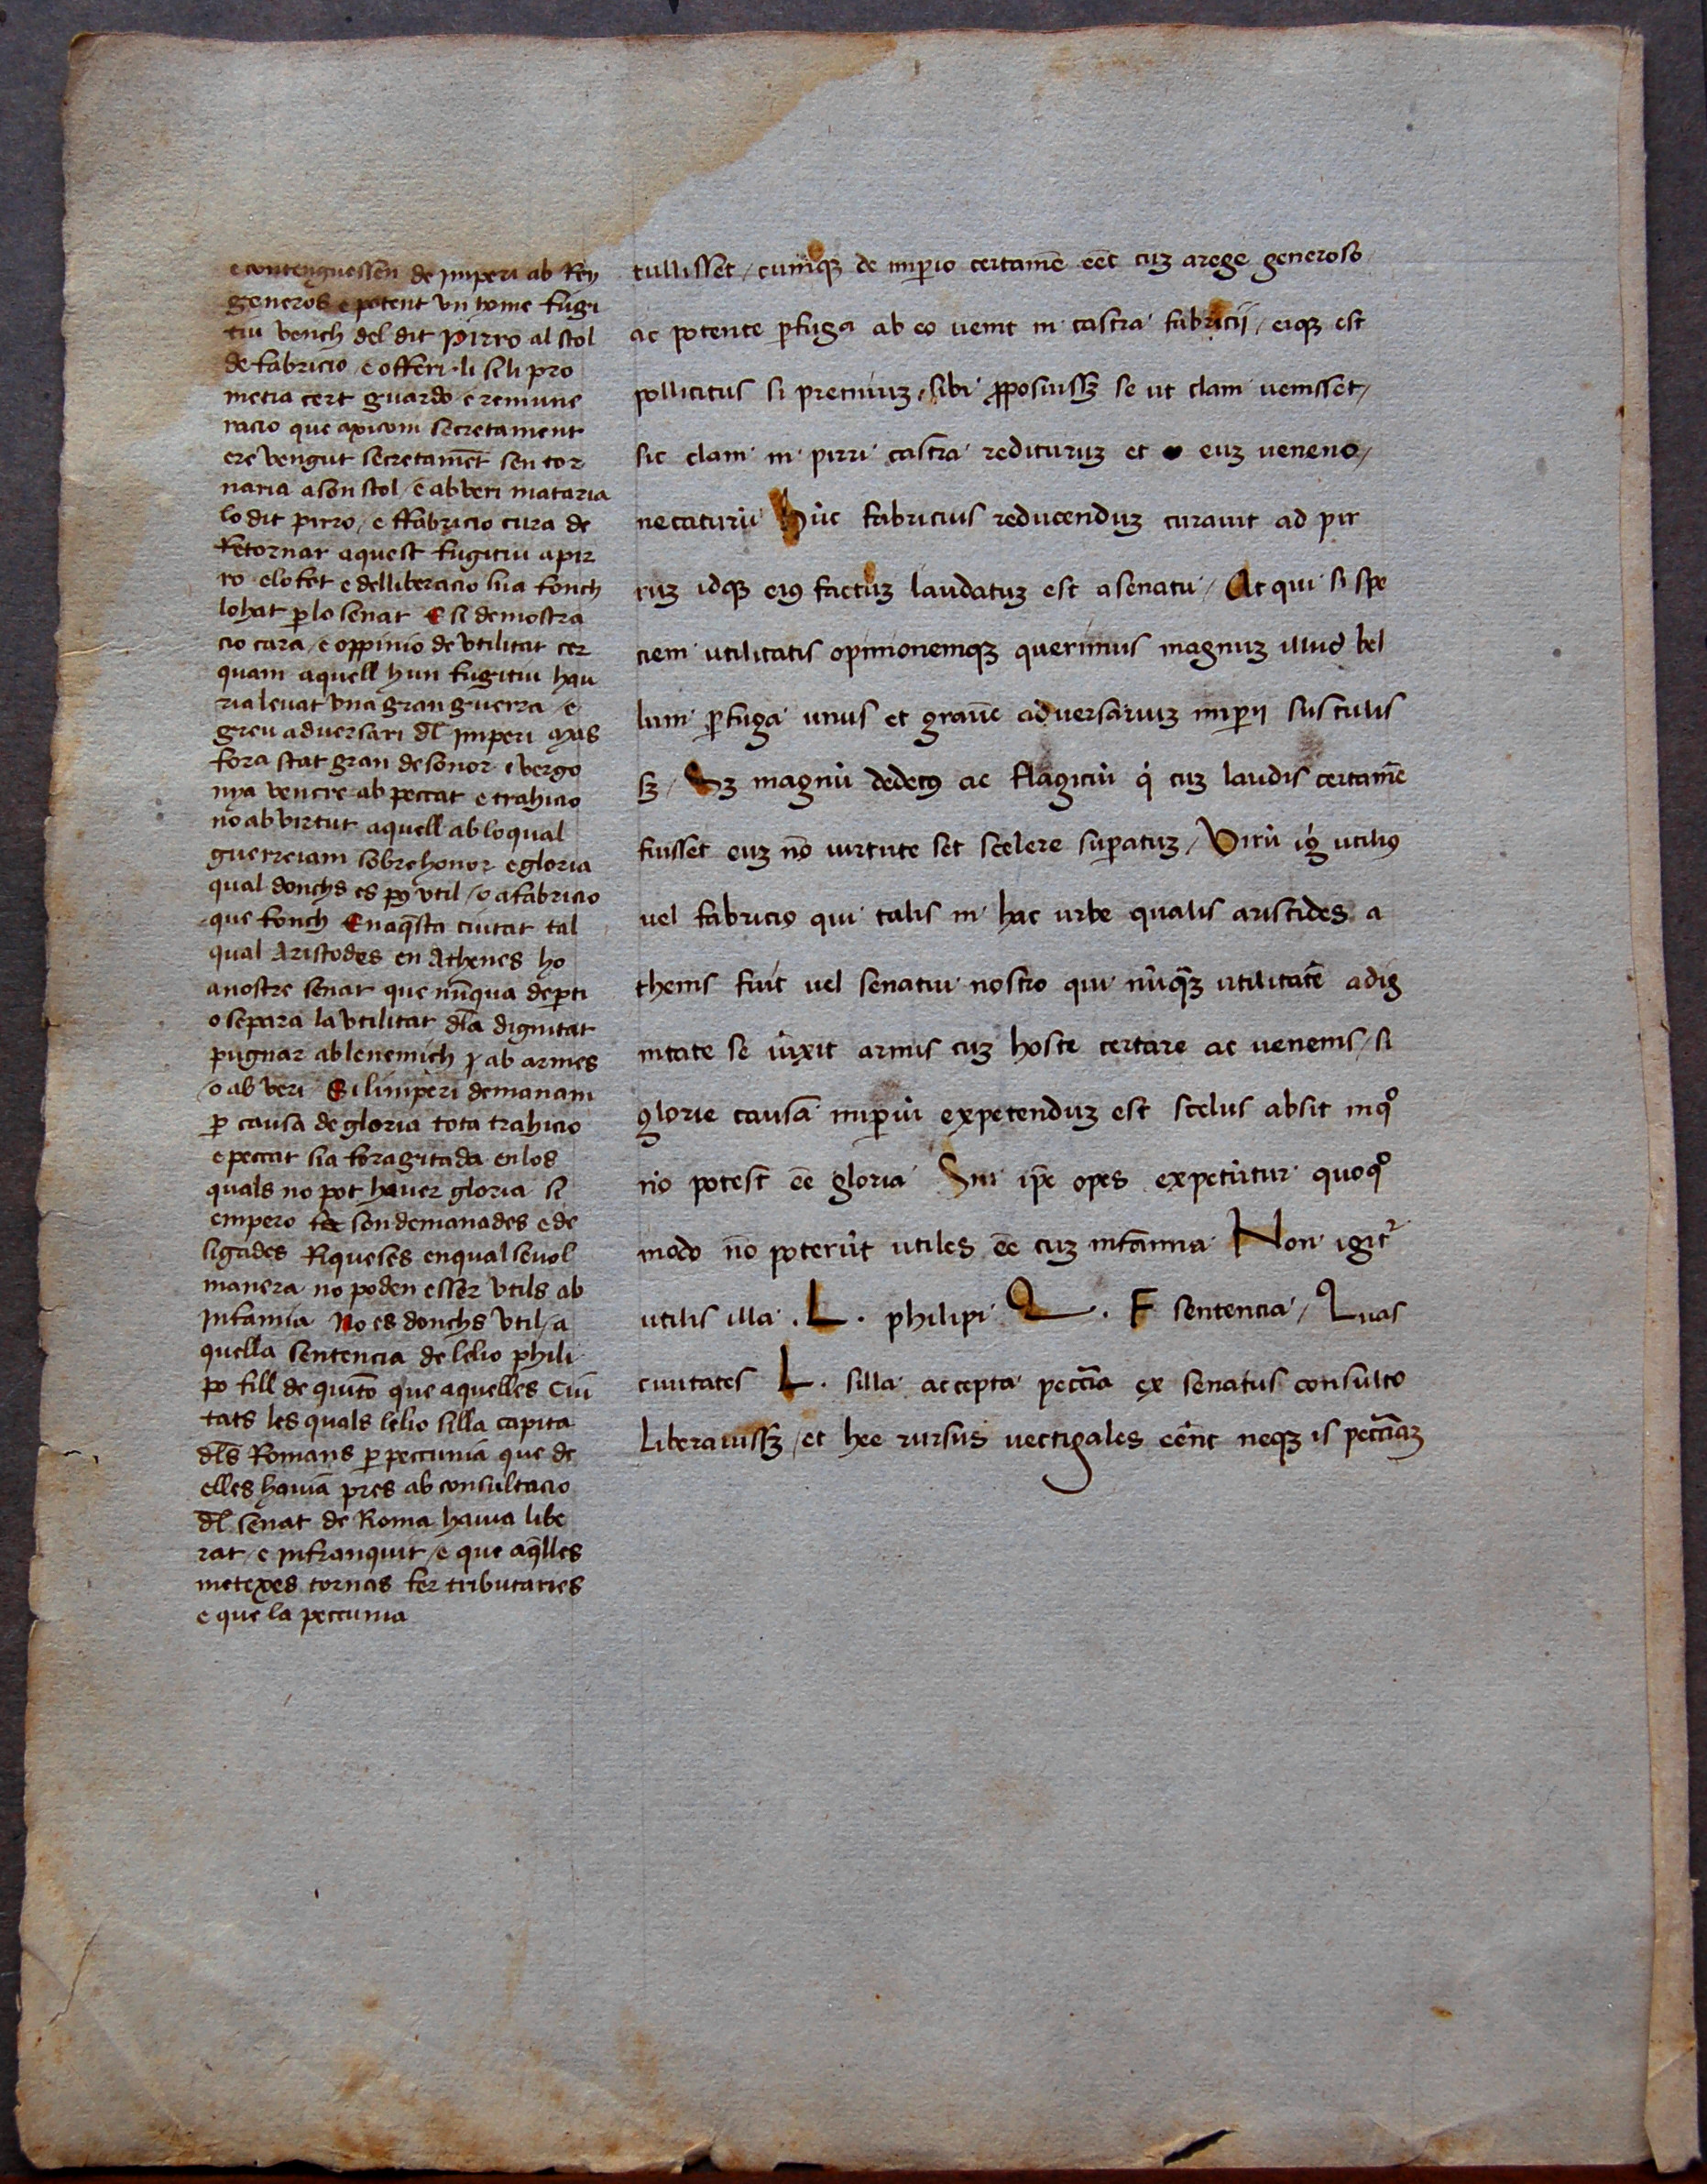 e contenguessen de jmperi ab Rey
generos e potent vn home fugi
tiu vench del dit pirro al stol
de fabricio / e offeri·li si li pro
metia cert guardo e remune
racio que axicom secretament
ere vengut secretamēt sen tor
naria a son stol / e ab veri mataria
lo dit pirro / e ffabricio cura de
Retornar aquest fugitiu a pir
ro elo fet e delliberacio sua fonch
lohat ꝑ lo senat E si demostra
cio cara / e oppinio de vtilitat cer
quam aquell hun fugitiu hau
ria leuat vna gran guerra / e
greu aduersari dl̄ jmperi mas
fora stat gran desonor e vergo
nya vencre ab peccat e trahicio
no ab virtut aquell ab lo qual
guerreiam sobre honor e gloria
qual donchs es pꝰ vtil / o a fabricio
que fonch En aq̄sta ciutat tal
qual Aristodes en Athenes ho
a nostre senat que nūqua depti
o separa la vtilitat dl̄a dignitat
pugnar ab lenemich j ab armes
/ o ab veri Si limperi demanam
ꝑ causa de gloria tota trahicio
e peccat sia foragitada en los
quals no pot hauer gloria si
empero son demanades e de
sigades Riqueses en qual seuol
manera no poden esser vtils ab
jnfamia No es donchs vtil / a
quella sentencia de lelio phili
po fill de quīto que aquelles Ciu
tats les quals lelio silla capita
dl̄s Romans ꝑ peccunia que de
elles hauiā pres ab consultacio
dl̄ senat de Roma hauia libe
rat / e jnfranquit / e que aq̄lles
metexes tornas fer tributaries
e que la peccunia
tullisset / cumqꝫ de imꝑio certamē eēt cuꝫ a rege generoso
ac potente ꝑfuga ab eo uenit in castra fabricij / eiqꝫ est
pollicitus si premiuꝫ sibi ꝓposuissꝫ se ut clam uenisset /
sic clam in pirri castra redituruꝫ et euꝫ ueneno /
necaturū hūc fabricius reducenduꝫ curauit ad pir
ruꝫ idqꝫ eiꝰ factuꝫ laudatuꝫ est a senatu / At qui si spe
ciem utilitatis opinionemqꝫ querimus magnuꝫ illud bel
lum ꝑfuga unus et grauē aduersariuꝫ imꝑij sustulis
sꝫ / Sꝫ magnū dedecꝰ ac flagiciū q̇ cuꝫ laudis certamē
fuisset euꝫ nō uirtute set scelere suꝑatuꝫ / Vtrū ig̊ utiliꝰ
uel fabricio qui talis in hac urbe qualis aristides a
thenis fuit uel senatui nostro qui nūqꝫ utilitatē a dig
nitate se iūxit armis cuꝫ hoste certare ac uenenis / si
glorie causa imꝑiū expetenduꝫ est scelus absit in q̊
nō potest eē gloria Sin ip̄e opes expetūtur quoq̊
modo nō poterūt utiles eē cuꝫ infamia Non igit᷑
utilis illa . L . philipi Q . F sentencia / Quas
ciuitates L . silla accepta peccīa ex senatus consulto
liberauissꝫ / et hee rursus uectigales eēnt neqꝫ is peccīaꝫ